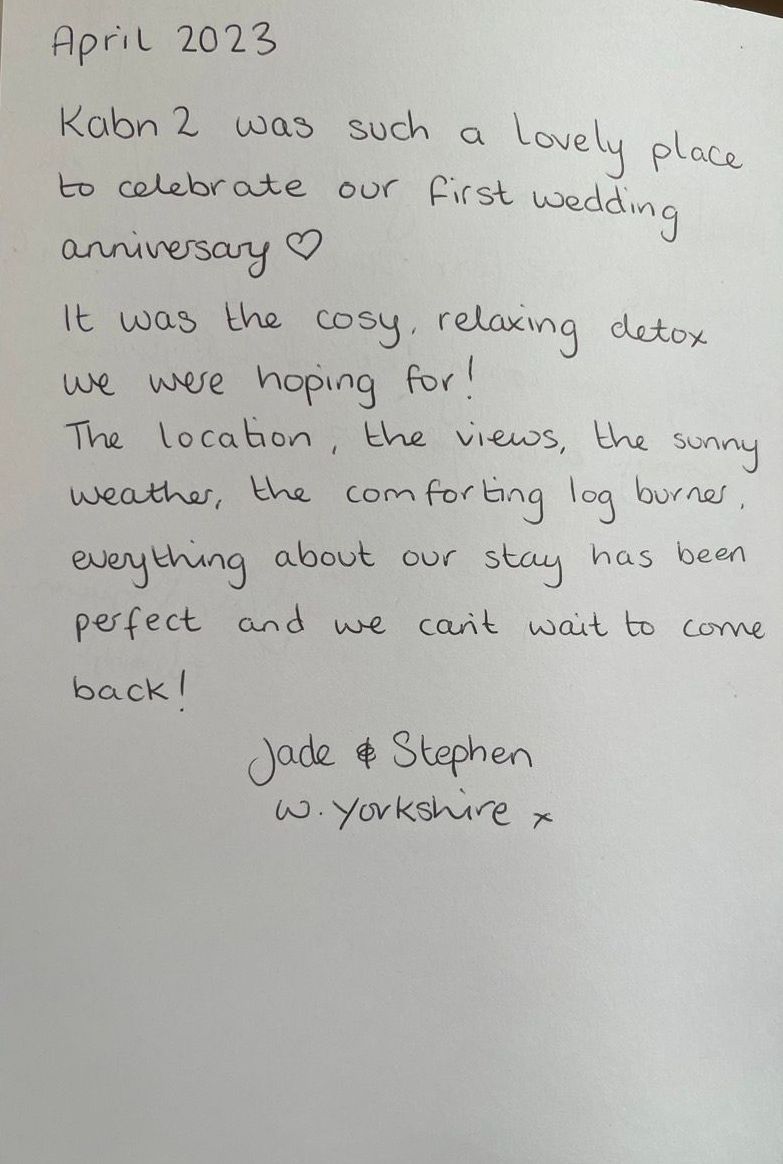 April 2023
Kabn 2 was such a lovely place
to celebrate our first wedding
anniversary ♡
It was the cosy, relaxing detox
we were hoping for!
The location, the views, the sunny
weather, the comforting log burner,
everything about our stay has been
perfect and we can't wait to come
back!
Jade & Stephen
W. Yorkshire x